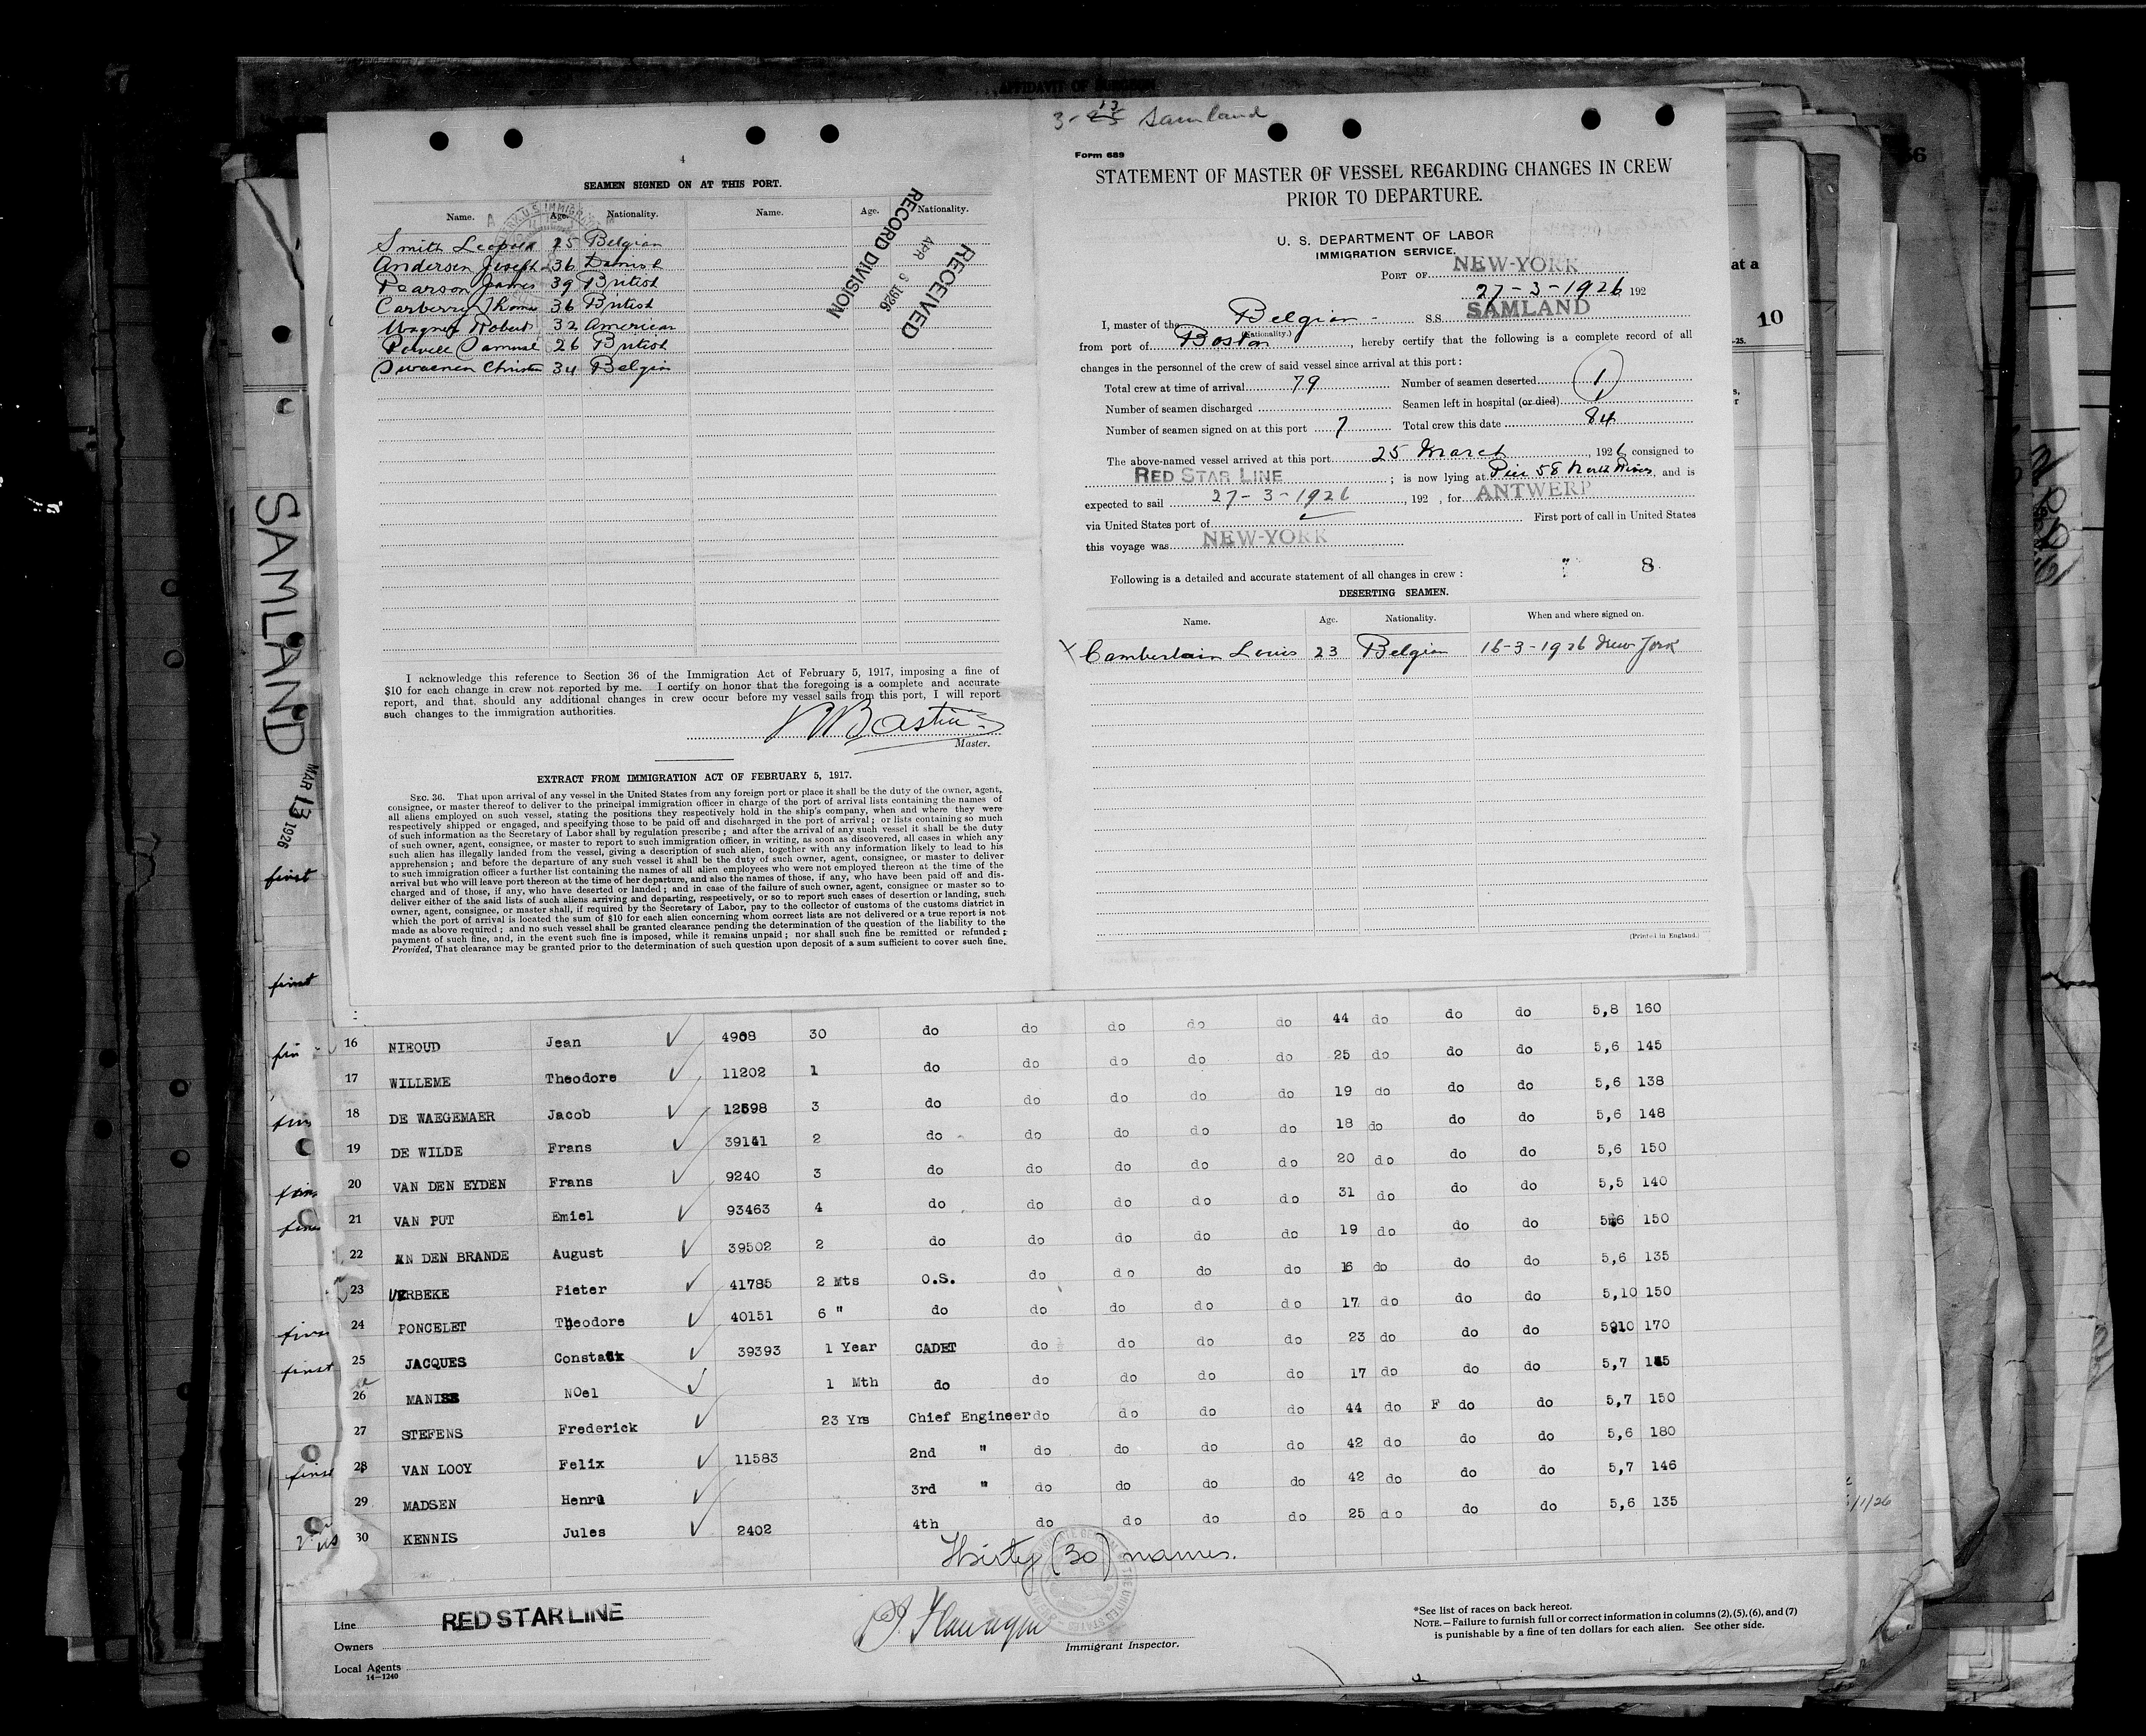 AFFIDAVIT OF SURGEON
3-13 Samland
4
SEAMEN SIGNED ON AT THIS PORT.
Name. Age. Nationality. Name. Age. Nationality.
Smith Leopold 25 Belgian
Andersen Joseph 36 Danish
Pearson James 39 British
Carberry Thom 36 British
Wagner Robert 32 American
Powell Samuel 26 British
Swaenen Christ 34 Belgian
RECEIVED
APR 5 1926
RECORD DIVISION
I acknowledge this reference to Section 36 of the Immigration Act of February 5, 1917, imposing a fine of
$10 for each change in crew not reported by me. I certify on honor that the foregoing is a complete and accurate
report, and that, should any additional changes in crew occur before my vessel sails from this port, I will report
such changes to the immigration authorities.
Master.
EXTRACT FROM IMMIGRATION ACT OF FEBRUARY 5, 1917.
SEC. 36. That upon arrival of any vessel in the United States from any foreign port or place it shall be the duty of the owner, agent,
consignee, or master thereof to deliver to the principal immigration officer in charge of the port of arrival lists containing the names of
all aliens employed on such vessel, stating the positions they respectively hold in the ship's company, when and where they were
respectively shipped or engaged, and specifying those to be paid off and discharged in the port of arrival; or lists containing so much
of such information as the Secretary of Labor shall by regulation prescribe; and after the arrival of any such vessel it shall be the duty
of such owner, agent, consignee, or master to report to such immigration officer, in writing, as soon as discovered, all cases in which any
such alien has illegally landed from the vessel, giving a description of such alien, together with any information likely to lead to his
apprehension; and before the departure of any such vessel it shall be the duty of such owner, agent, consignee, or master to deliver
to such immigration officer a further list containing the names of all alien employees who were not employed thereon at the time of the
arrival but who will leave port thereon at the time of her departure, and also the names of those, if any, who have been paid off and dis-
charged and of those, if any, who have deserted or landed; and in case of the failure of such owner, agent, consignee or master so to
deliver either of the said lists of such aliens arriving and departing, respectively, or so to report such cases of desertion or landing, such
owner, agent, consignee, or master shall, if required by the Secretary of Labor, pay to the collector of customs of the customs district in
which the port of arrival is located the sum of $10 for each alien concerning whom correct lists are not delivered or a true report is not
made as above required; and no such vessel shall be granted clearance pending the determination of the question of the liability to the
payment of such fine, and, in the event such fine is imposed, while it remains unpaid; nor shall such fine be remitted or refunded;
Provided, That clearance may be granted prior to the determination of such question upon deposit of a sum sufficient to cover such fine.
Form 689
STATEMENT OF MASTER OF VESSEL REGARDING CHANGES IN CREW
PRIOR TO DEPARTURE.
U. S. DEPARTMENT OF LABOR
IMMIGRATION SERVICE.
PORT OF NEW-YORK
27-3-1926, 192
I, master of the Belgian S.S. SAMLAND
(Nationality.)
from port of Boston, hereby certify that the following is a complete record of all
changes in the personnel of the crew of said vessel since arrival at this port:
Total crew at time of arrival 79 Number of seamen deserted 1
Number of seamen discharged Seamen left in hospital (or died)
Number of seamen signed on at this port 7 Total crew this date 84
The above-named vessel arrived at this port 25 March, 1926 consigned to
RED STAR LINE; is now lying at Pier 58 North River, and is
expected to sail 27-3-1926, 192 , for ANTWERP
via United States port of First port of call in United States
this voyage was NEW-YORK
Following is a detailed and accurate statement of all changes in crew: 8
DESERTING SEAMEN.
Name. Age. Nationality. When and where signed on.
X Camberlain Louis 23 Belgian 16-3-1926 New York
(Printed in England.)
at a
10
SAMLAND
MAR 13 1926
first
first
44 do do do 5,8 160
16 NIEOUD Jean 4908 30 do do do do do 25 do do do 5,6 145
17 WILLEME Theodore 11202 1 do do do do do 19 do do do 5,6 138
18 DE WAEGEMAER Jacob 12598 3 do do do do do 18 do do do 5,6 148
19 DE WILDE Frans 39141 2 do do do do do 20 do do do 5,6 150
20 VAN DEN EYDEN Frans 9240 3 do do do do do 31 do do do 5,5 140
21 VAN PUT Emiel 93463 4 do do do do do 19 do do do 5,6 150
22 AN DEN BRANDE August 39502 2 do do do do do 16 do do do 5,6 135
23 VERBEKE Pieter 41785 2 Mts O.S. do do do do 17 do do do 5,10 150
24 PONCELET Theodore 40151 6 " do do do do do 23 do do do 5,10 170
25 JACQUES Constant 39393 1 Year CADET do do do do 17 do do do 5,7
26 MANISE NOel 1 Mth do do do do do 44 do F do do 5,7 150
27 STEFENS Frederick 23 Yrs Chief Engineer do do do do 42 do do do 5,6 180
28 VAN LOOY Felix 11583 2nd " do do do do 42 do do do 5,7 146
29 MADSEN Henri 3rd " do do do do 25 do do do 5,6 135
30 KENNIS Jules 2402 4th do do do do
Thirty (30) names.
Line RED STAR LINE
Owners
Local Agents
14-1240
P.J. Flanagan
Immigrant Inspector.
*See list of races on back hereof.
NOTE.—Failure to furnish full or correct information in columns (2), (5), (6), and (7)
is punishable by a fine of ten dollars for each alien. See other side.